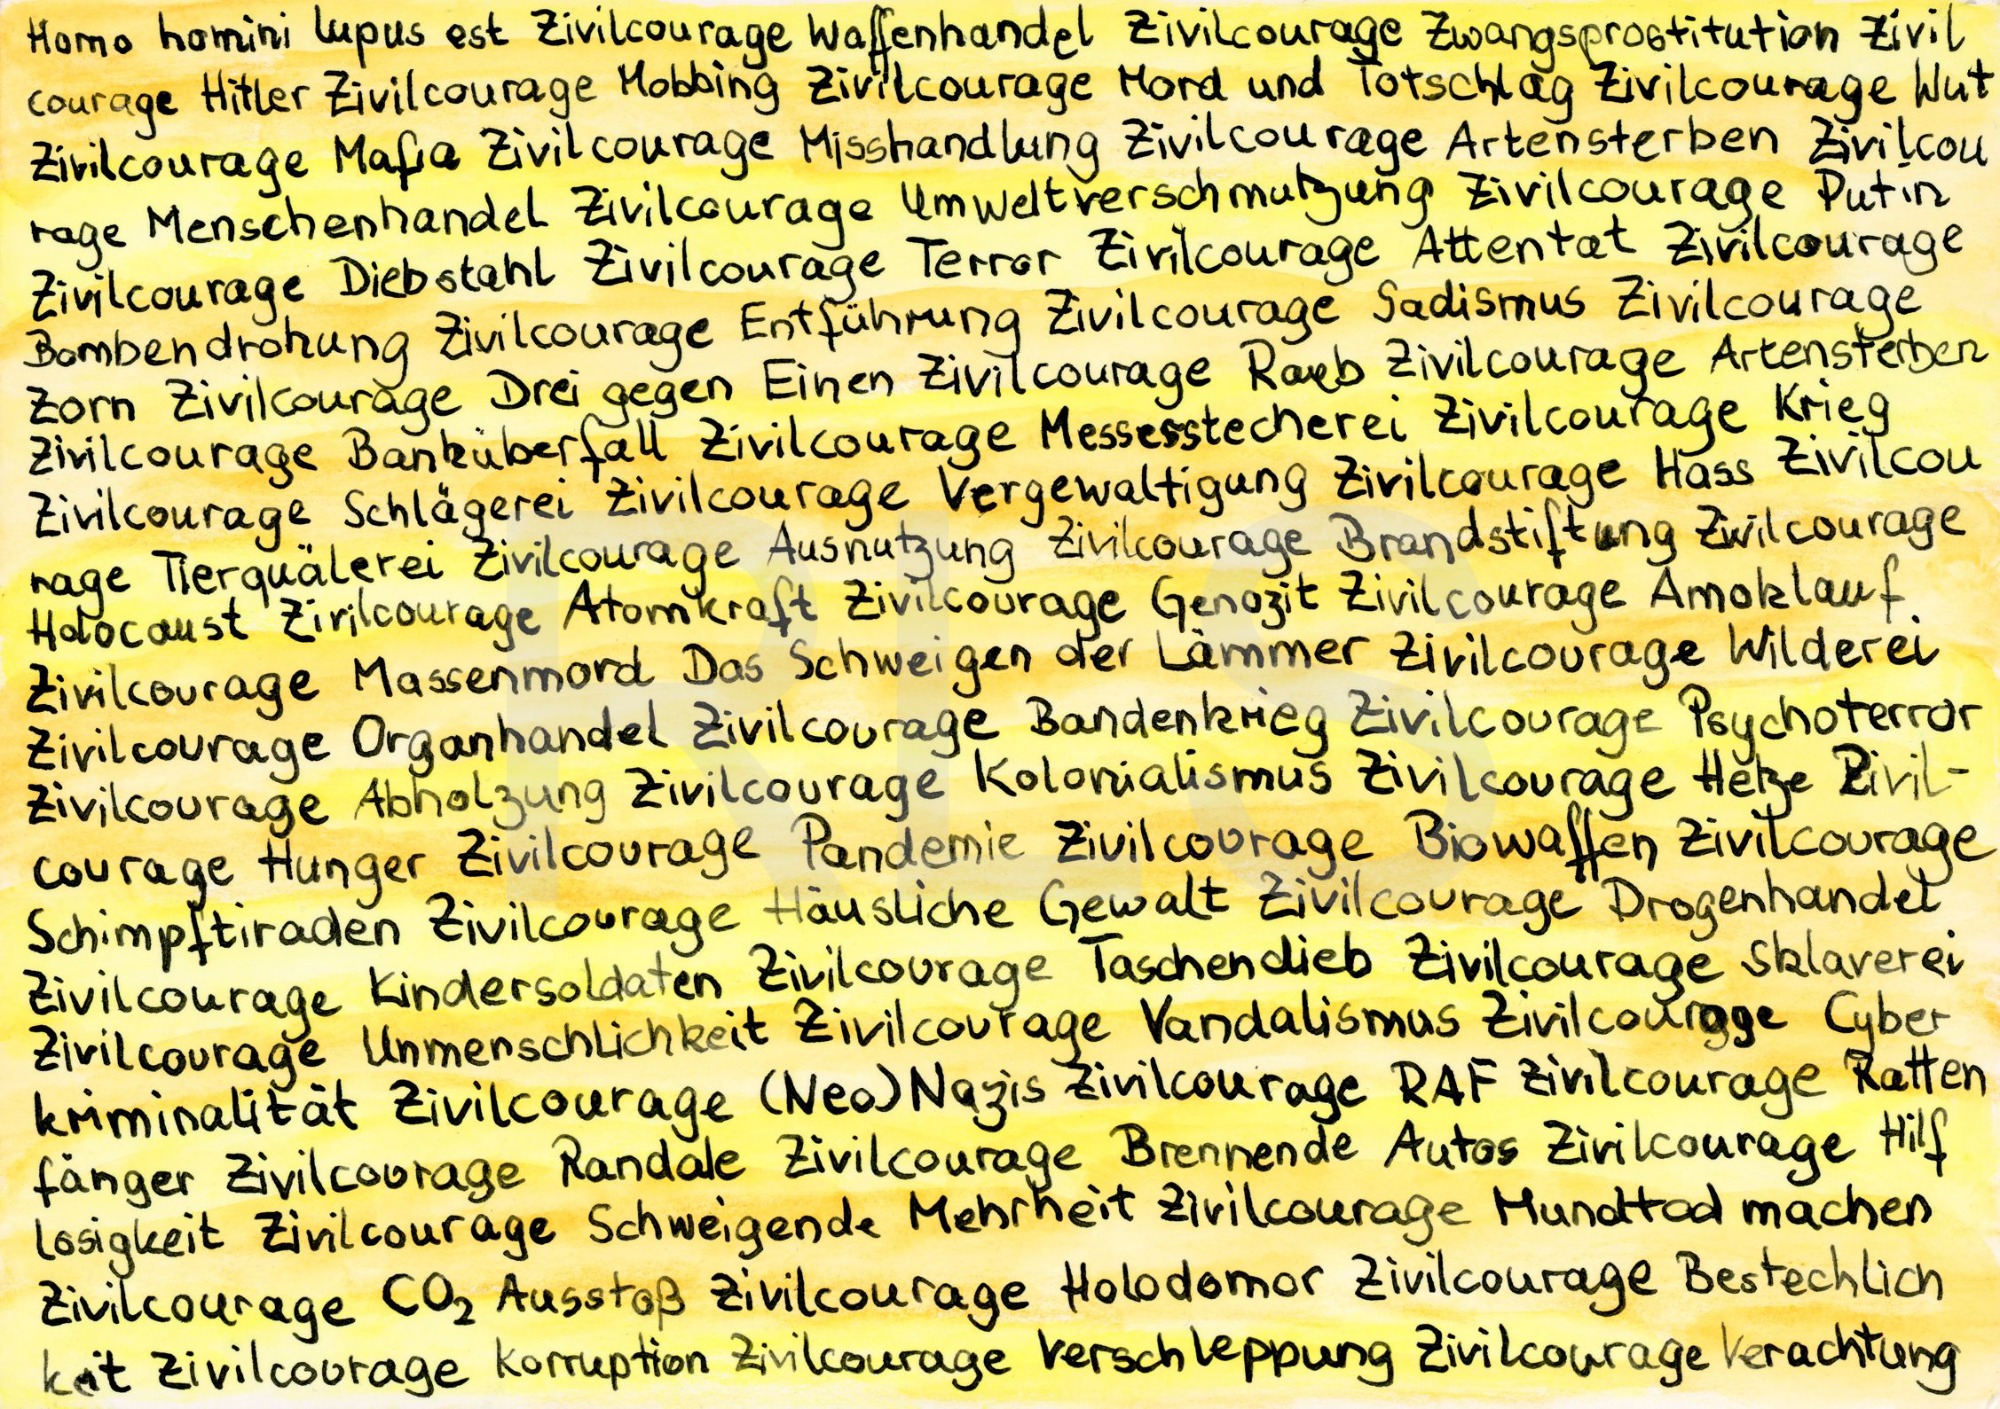 Homo homini lupus est Zivilcourage Waffenhandel Zivilcourage Zwangsprostitution Zivil
courage Hitler Zivilcourage Mobbing Zivilcourage Mord und Totschlag Zivilcourage Wut
Zivilcourage Mafia Zivilcourage Misshandlung Zivilcourage Artensterben Zivilcou
rage Menschenhandel Zivilcourage Umweltverschmutzung Zivilcourage Putin
Zivilcourage Diebstahl Zivilcourage Terror Zivilcourage Attentat Zivilcourage
Bombendrohung Zivilcourage Entführung Zivilcourage Sadismus Zivilcourage
Zorn Zivilcourage Drei gegen Einen Zivilcourage Raub Zivilcourage Artensterben
Zivilcourage Banküberfall Zivilcourage Messesstecherei Zivilcourage Krieg
Zivilcourage Schlägerei Zivilcourage Vergewaltigung Zivilcourage Hass Zivilcou
rage Tierquälerei Zivilcourage Ausnutzung Zivilcourage Brandstiftung Zivilcourage
Holocaust Zivilcourage Atomkraft Zivilcourage Genozit Zivilcourage Amoklauf
Zivilcourage Massenmord Das Schweigen der Lämmer Zivilcourage Wilderei
Zivilcourage Organhandel Zivilcourage Bandenkrieg Zivilcourage Psychoterror
Zivilcourage Abholzung Zivilcourage Kolonialismus Zivilcourage Hetze Zivil-
courage Hunger Zivilcourage Pandemie Zivilcourage Biowaffen Zivilcourage
Schimpftiraden Zivilcourage Häusliche Gewalt Zivilcourage Drogenhandel
Zivilcourage Kindersoldaten Zivilcourage Taschendieb Zivilcourage Sklaverei
Zivilcourage Unmenschlichkeit Zivilcourage Vandalismus Zivilcourage Cyber
kriminalität Zivilcourage (Neo)Nazis Zivilcourage RAF Zivilcourage Ratten
fänger Zivilcourage Randale Zivilcourage Brennende Autos Zivilcourage Hilf
losigkeit Zivilcourage Schweigende Mehrheit Zivilcourage Mundtod machen
Zivilcourage CO₂ Ausstoß Zivilcourage Holodomor Zivilcourage Bestechlich
keit Zivilcourage Korruption Zivilcourage Verschleppung Zivilcourage Verachtung
RLS